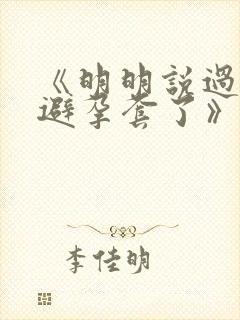 《明明說過
避孕套了》
李佳明